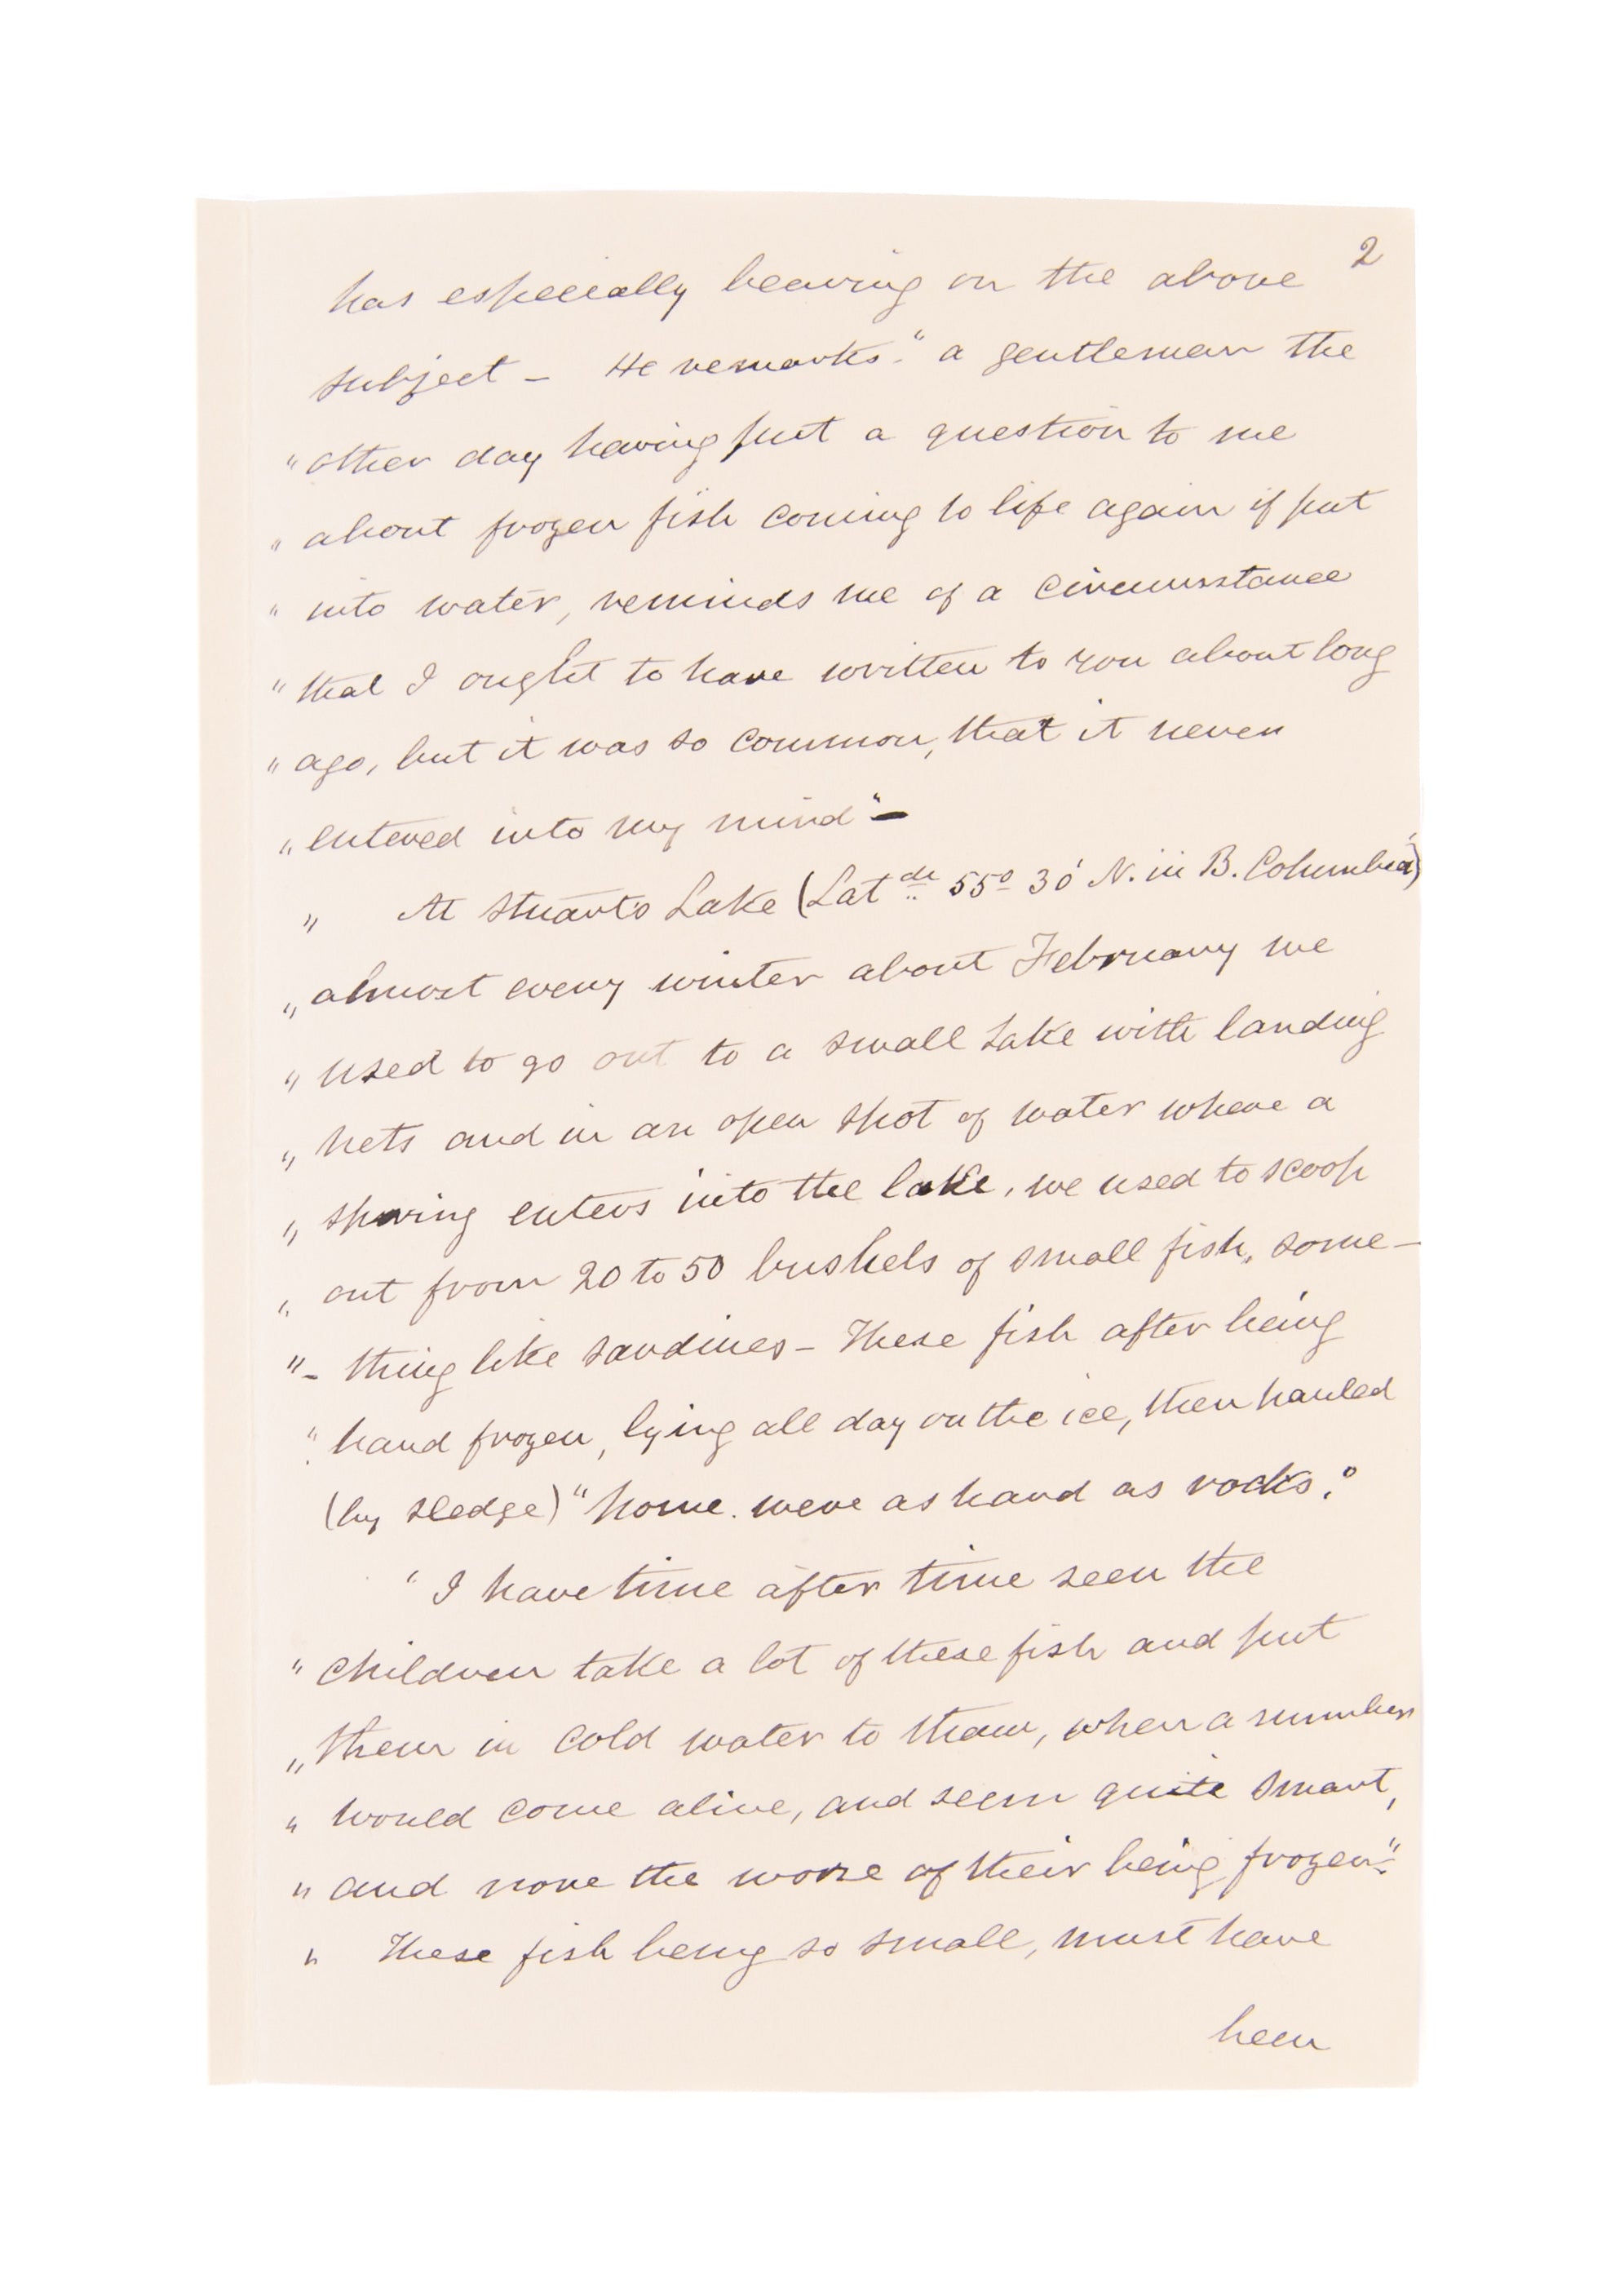 2
has especially bearing on the above
subject – He remarks. "a gentleman the
"other day having put a question to me
"about frozen fish coming to life again if put
"into water, reminds me of a circumstance
"that I ought to have written to you about long
"ago, but it was so common, that it never
"entered into my mind" –
" At Stuart's Lake (Latde 55° 30' N. in B. Columbia)
"almost every winter about February we
"used to go out to a small Lake with landing
"nets and in an open spot of water where a
"spring enters into the lake, we used to scoop
"out from 20 to 50 bushels of small fish, some–
"– thing like sardines – These fish after being
"hard frozen, lying all day on the ice, then hauled
(by sledge) "home. were as hard as rocks."
"I have time after time seen the
"children take a lot of these fish and put
"them in cold water to thaw, when a number
"would come alive, and seem quite smart,
"and none the worse of their being frozen".
" These fish being so small, must have
been